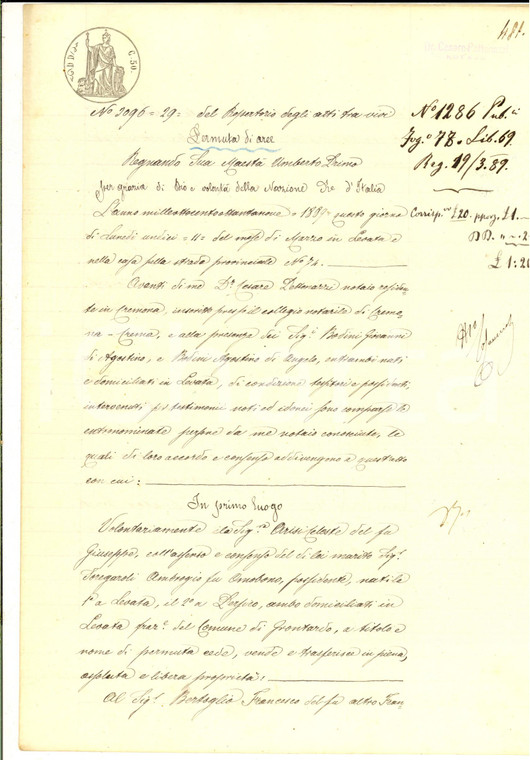 481.
C. 50.
No 2096 = 29 = del Repertorio degli atti tra vivi
Permuta di aree
Regnando Sua Maestà Umberto Primo
per grazia di Dio e volontà della Nazione Re d'Italia
L'anno milleottocentottantanove = 1889 questo giorno
di Lunedì undici = 11 = del mese di Marzo in Levata e
nella casa sulla strada provinciale No 74.
Avanti di me Dr. Cesare notaio residen
te in Cremona, inscritto presso il collegio notarile di Cremo
na - Crema, e alla presenza dei Sig.i Bodini Giovanni
di Agostino, e Bodini Agostino di Angelo, entrambi nati
e domiciliati in Levata, di condizione possidenti,
intervenuti per testimonii noti ed idonei sono comparse le
entronominate persone da me notaio conosciute, le
quali di loro accordo e consenso addivengono a quest'atto
con cui:
In primo luogo
Volontariamente la Sig.ra Arisi Celeste del fu
Giuseppe, coll'assenso e consenso del di lei marito Sig.r
Ambrogio fu Omobono, possidente, nati la
1a a Levata, il 2o a Persico, ambo domiciliati in
Levata fraz.e del Comune di Grontardo, a titolo e
nome di permuta cede, vende e trasferisce in piena,
assoluta e libera proprietà:
Al Sig.r Bertoglio Francesco del fu altro Fran
No 1286 Pub.i
Fog.o 78 = Lib. 69.
Reg. 19/3.89.
Corrisp.e £ 20. £ 1
£ 1:20